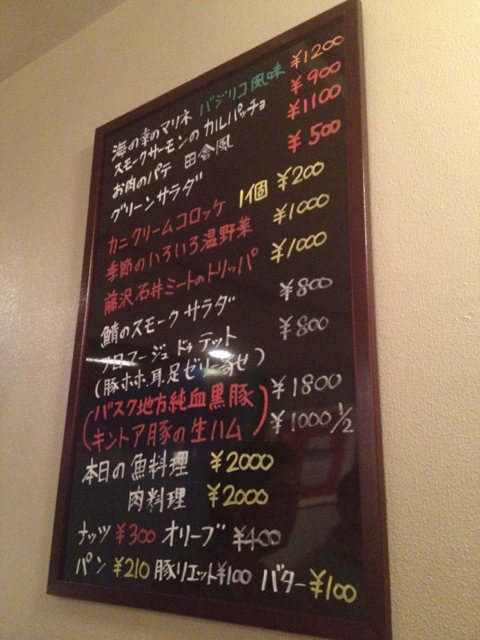 海の幸のマリネ バジリコ風味 ¥1200
スモークサーモンのカルパッチョ ¥900
お肉のパテ 田舎風 ¥1100
グリーンサラダ ¥500
カニクリームコロッケ 1個 ¥200
季節のいろいろ温野菜 ¥1000
藤沢石井ミートのトリッパ ¥1000
鯖のスモークサラダ ¥800
フロマージュ ドゥ テット ¥800
(豚ホホ、耳、足ゼリー寄せ)
(バスク地方純血黒豚 ¥1800
キントア豚の生ハム) ¥1000 1/2
本日の魚料理 ¥2000
肉料理 ¥2000
ナッツ ¥300 オリーブ ¥400
パン ¥210 豚リエット ¥100 バター ¥100